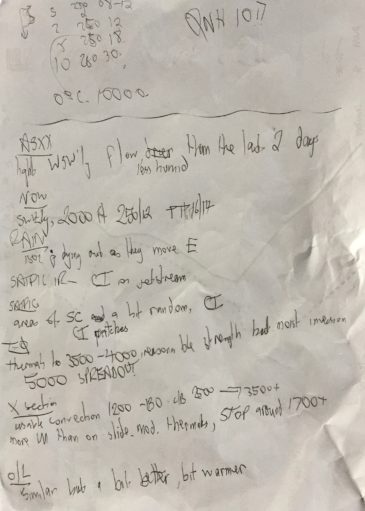 5 250 08-12
2 250 12
5 250 18
10 260 30
QNH 1017
0°C 10000
ASXX
light WSW'ly flow, than the last 2 days
less humid
NOW
2000 ft 250/12
RAIN
dying out as they move E
SATPIC IR - CI on jetstream
SATPIC
areas of SC a bit random, CI
CI patches
thermals to 3500 - 4000 reasonable strength but moist inversion
5000 SPREADOUT
X section
usable convection 1200 - cb 2500 → 3500+
more than on slide. mod. thermals, STOP around 1700+
O/L
Similar but a bit better, bit warmer